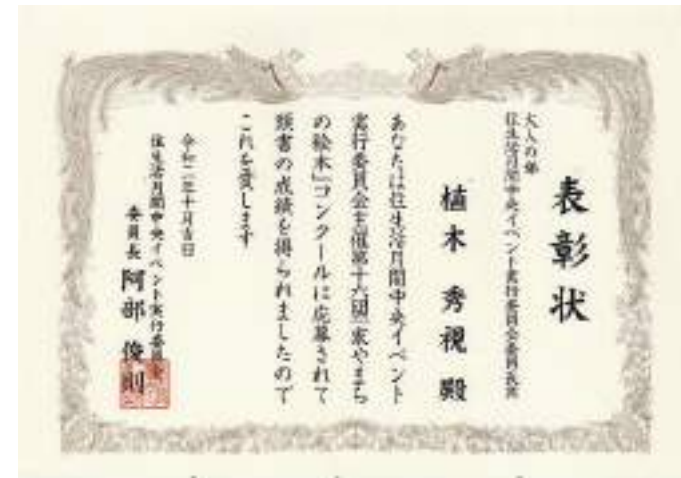 表彰状
大人の部
住生活月間中央イベント実行委員会委員長賞
植木 秀視 殿
あなたは住生活月間中央イベント
実行委員会主催第十六回「家やまち
の絵本」コンクールに応募されて
頭書の成績を得られましたので
これを賞します
令和二年十月吉日
住生活月間中央イベント実行委員会
委員長 阿部 俊則